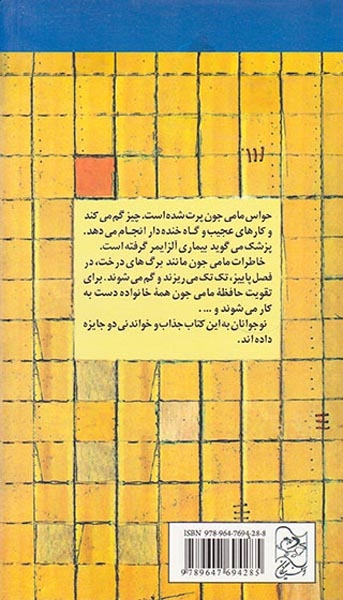 حواس مامی جون پرت شده است. چیز گم می کند
و کارهای عجیب و گاه خنده دار انجام می دهد.
پزشک می گوید بیماری آلزایمر گرفته است.
خاطرات مامی جون مانند برگ های درخت، در
فصل پاییز، تک تک می ریزند و گم می شوند. برای
تقویت حافظهٔ مامی جون همهٔ خانواده دست به
کار می شوند و ... .
نوجوانان به این کتاب جذاب و خواندنی دو جایزه
داده اند.
ISBN 978-964-7694-28-8
9 789647 694285